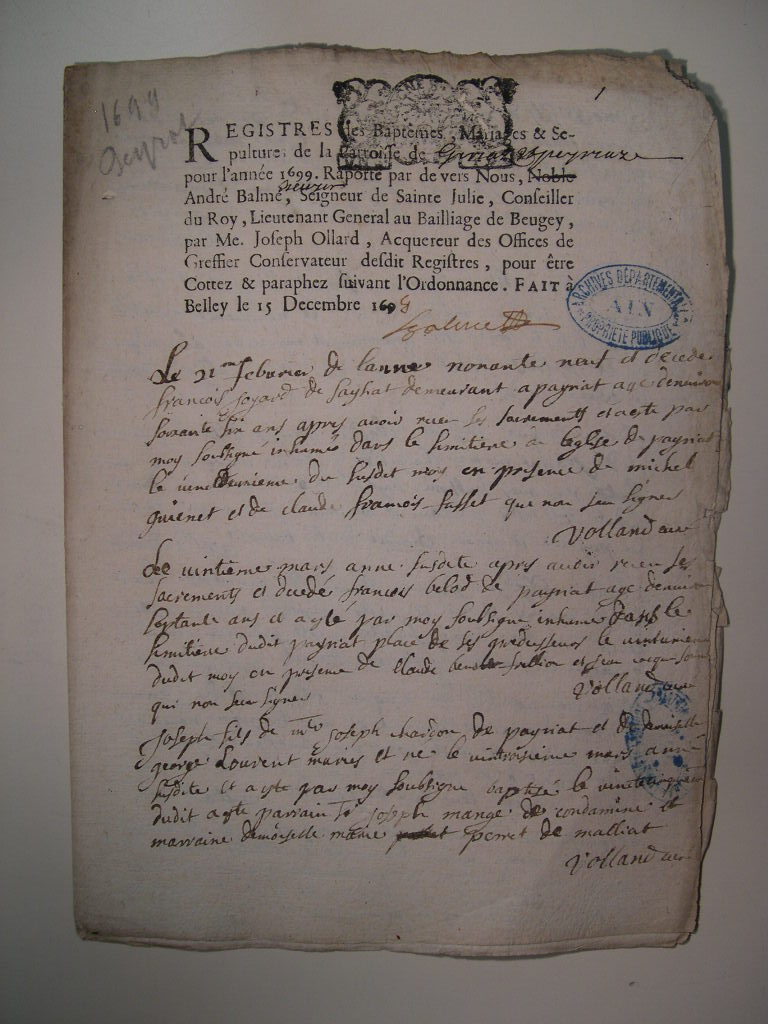 1
1699
Peyriat
REGISTRES des Baptêmes, Mariages & Se-
pultures de la Parroisse de
pour l'année 1699. Raporté par de vers Nous, Noble
André Balme, Seigneur de Sainte Julie, Conseiller
du Roy, Lieutenant General au Bailliage de Beugey,
par Me. Joseph Ollard, Acquereur des Offices de
Greffier Conservateur desdit Registres, pour être
Cottez & paraphez suivant l'Ordonnance. FAIT à
Belley le 15 Decembre 169
Balme
ARCHIVES DÉPARTEMENTALES
AIN
PROPRIÉTÉ PUBLIQUE
Le 21me febvrier de lanne nonante neuf et decede
francois joyard de demeurant a payriat age denviron
soixante six ans apres avoir receu les sacrements et a este par
moy soubsigné inhumé dans le simitiere de leglise de payriat
le du susdit moys en presence de michel
et de claude francois qui non sceu signer
Volland curé
Le vintieme mars anne susdite apres avoir receu les
sacrements et decedé francois belod de payriat age denviron
septante ans et a esté par moy soubsigne inhumé dans le
simitiere dudit payriat place de ses predecesseurs le
dudit moy en presence de Claude et
qui non sceu signer
Volland curé
Joseph fils de mre Joseph chardon de payriat et de demoiselle
george Lourent maries et ne le vintroisieme mars anné
susdite et a este par moy soubsigne baptisé le
dudit a este parrain Sr joseph mange de condamine et
marraine demoiselle marie perret de malliat
Volland curé